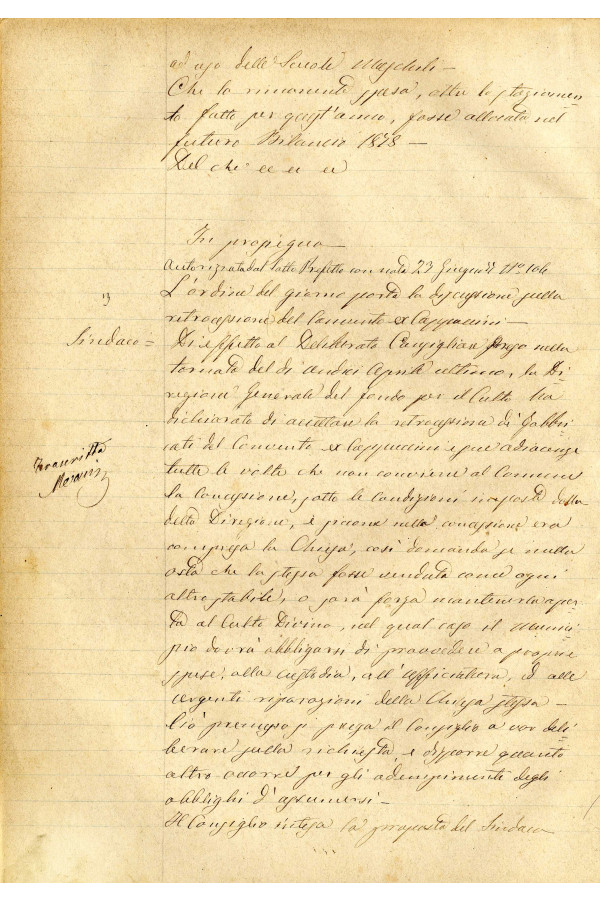 ad uso delle Scuole Maschili —
Che la rimanente spesa, oltre lo stanziamen
to fatto per quest'anno, fosse allocata nel
futuro Bilancio 1878 —
Del che ec ec ec
In propiequo
Autorizzata dal Sotto Prefetto con nota 23 Giugno N.º
13
L'ordine del giorno porta la discussione sulla
retrocessione del Convento ex Cappuccini —
Sindaco =
Di rispetto al Deliberato Consigliare preso nella
tornata del dì undici Aprile ultimo, la Di
rezione Generale del fondo per il Culto ha
dichiarato di accettare la retrocessione di fabbri
cati del Convento ex Cappuccini e sue adiacenze
tutte le volte che non conviene al Comune
la concessione, sotto le condizioni imposte dalla
detta Direzione, e siccome nella concessione era
compresa la Chiesa, così domanda se nulla
osta che la stessa fosse venduta come ogni
altro stabile, o sarà forza mantenerla aper
ta al Culto Divino, nel qual caso il Munici
pio dovrà obbligarsi di provvedere a proprie
spese, alla custodia, all'ufficiatura, ed alle
urgenti riparazioni della Chiesa stessa —
Ciò premesso si prega il Consiglio a voler deli
berare sulla richiesta, e disporre quanto
altro occorre per gli adempimente degli
obblighi d'assumersi —
Il Consiglio intesa la proposta del Sindaco